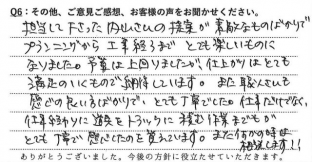 Q6：その他、ご意見ご感想、お客様の声をお聞かせください。
担当して下さった内山さんの提案が素敵なものばかりで
プランニングから工事終了まで とても楽しいものに
なりました。予算は上回りましたが、仕上がりはとても
満足のいくもので納得しています。また職人さんも
感じの良い方ばかりで、とても丁寧でした。仕事だけでなく、
仕事終わりに道具をトラックに積む作業までもが
とても丁寧で感心したのを覚えています。また何かの時は
相談します!!
ありがとうございました。今後の方針に役立たせていただきます。